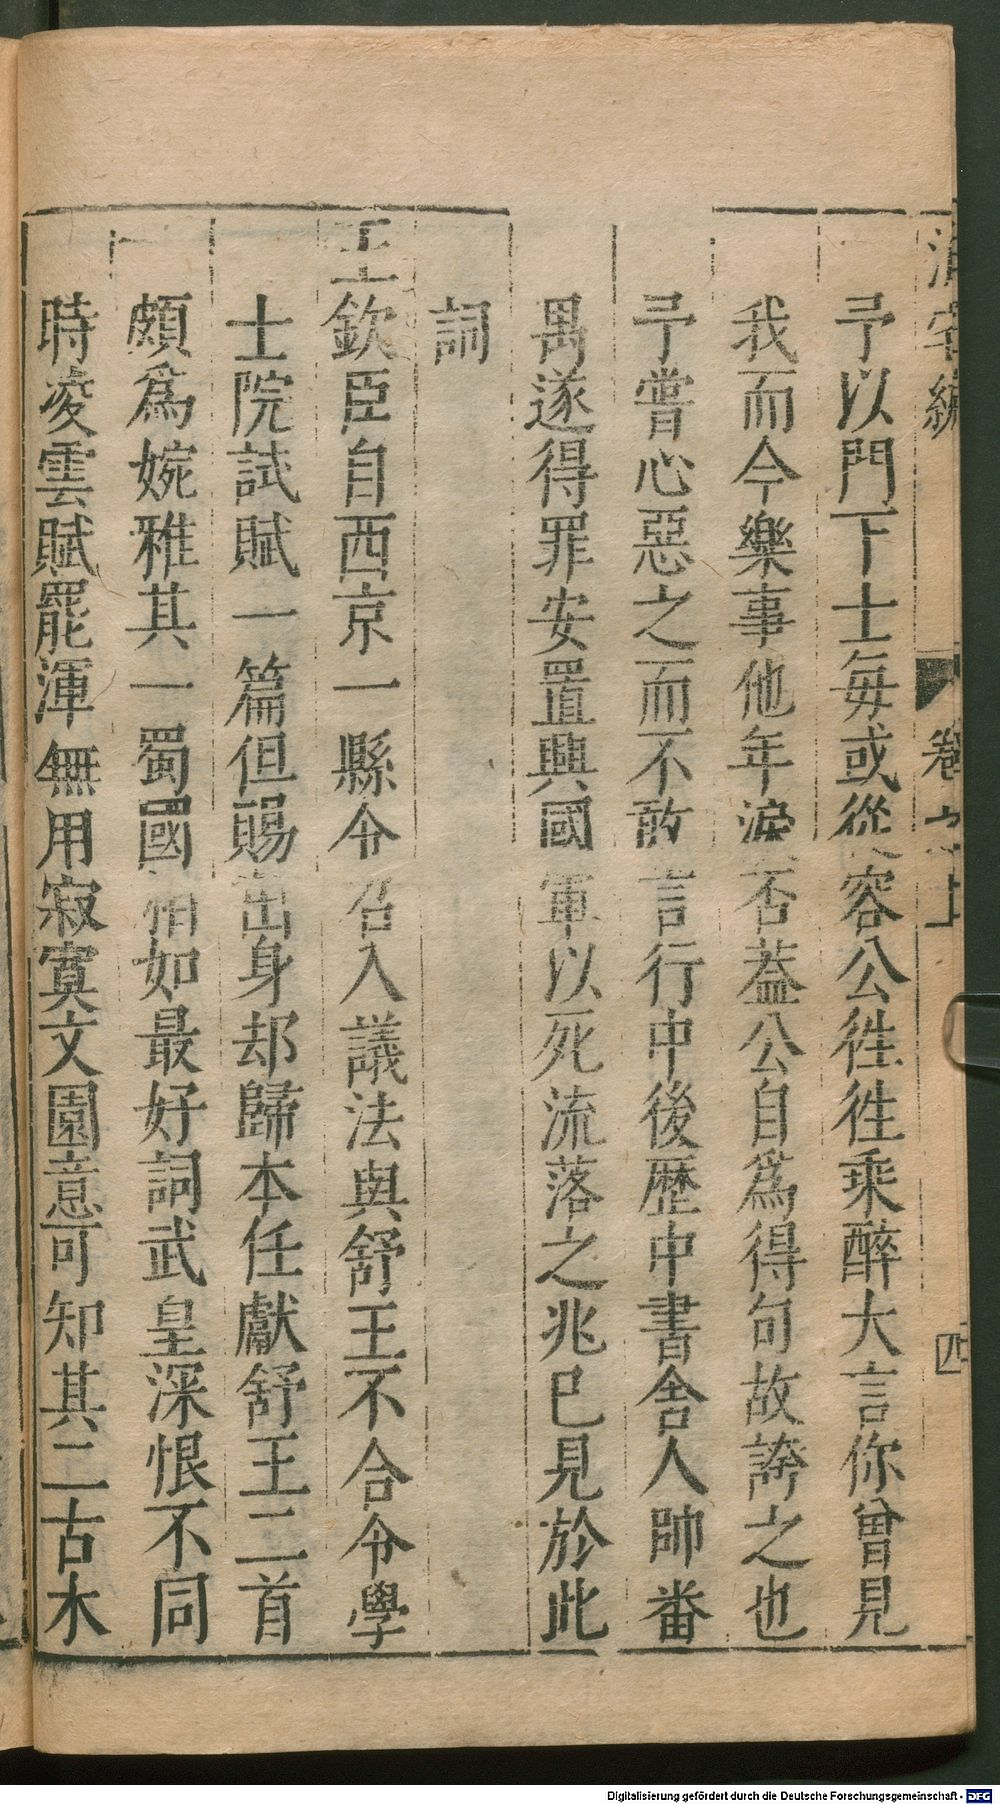 泊宅編 卷之上 四
予以門下士每或從容公徃徃乘醉大言你曾見
我而今樂事他年淚否葢公自爲得句故誇之也
予嘗心惡之而不敢言行中後歷中書舍人帥番
禺遂得罪安置興國軍以死流落之兆巳見於此
詞
王欽臣自西京一縣令召入議法與舒王不合令學
士院試賦一篇但賜出身却歸本任獻舒王二首
頗爲婉雅其一蜀國相如最好詞武皇深恨不同
時凌雲賦罷渾無用寂寞文園意可知其二古木
Digitalisierung gefördert durch die Deutsche Forschungsgemeinschaft - DFG